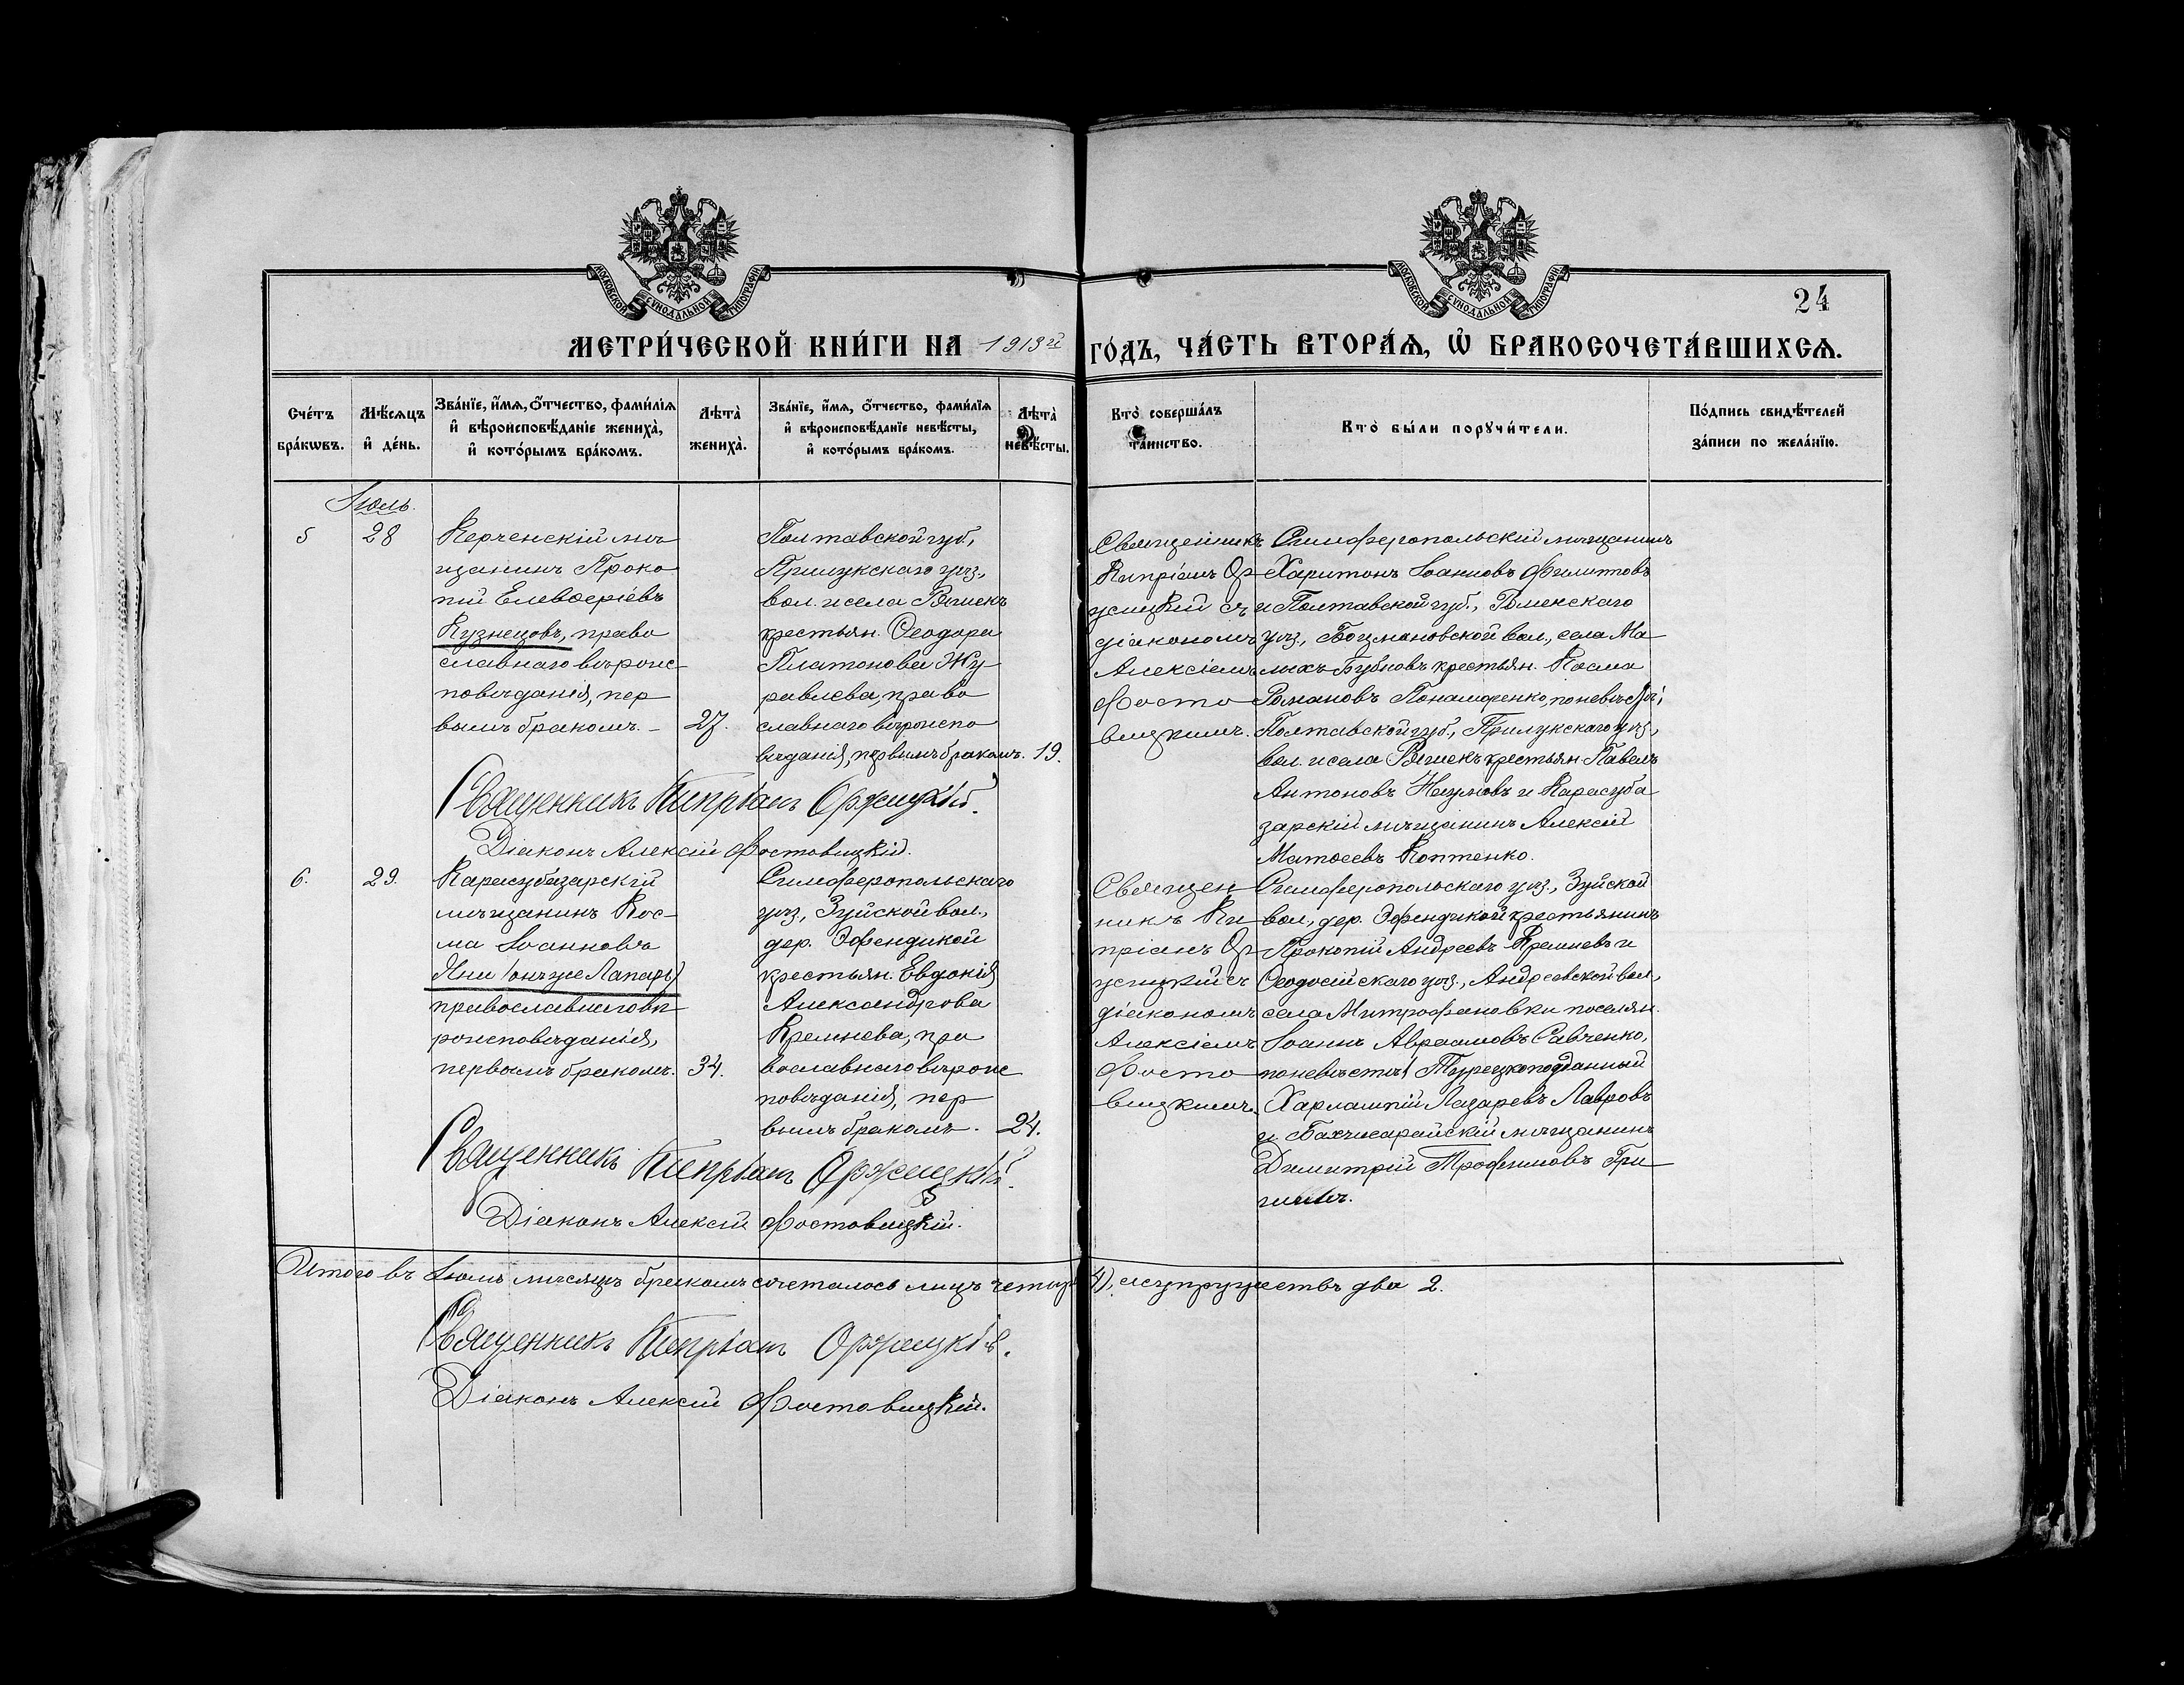 МОСКОВСКОЙ СУНОДАЛЬНОЙ ТИПОГРАФІИ
МОСКОВСКОЙ СУНОДАЛЬНОЙ ТИПОГРАФІИ
24
МЕТРИ́ЧЕСКОЙ КНИ́ГИ НА 1913й ГО́ДЪ, ЧА́СТЬ ВТОРА́Ѧ, Ѡ҆ БРАКОСОЧЕТА́ВШИХСѦ.
Сче́тъ бра́кѡвъ.
Мѣ́сѧцъ и҆ де́нь.
Зва́нїе, и҆́мѧ, о҆́тчество, фами́лїѧ
и҆ вѣроисповѣ́данїе жениха̀,
и҆ кото́рымъ бра́комъ.
Лѣта̀ жениха̀.
Зва́нїе, и҆́мѧ, о҆́тчество, фами́лїѧ
и҆ вѣроисповѣ́данїе невѣ́сты,
и҆ кото́рымъ бра́комъ.
Лѣта̀ невѣ́сты.
Кто̀ соверша́лъ та́инство.
Кто̀ бы́ли порꙋчи́тели.
По́дпись свидѣ́телей
за́писи по жела́нїю.
Іюль.
5
28
Керченскій мѣ-
щанинъ Проко-
пій Елевѳеріевъ
Кузнецовъ, право
славнаго вѣроис-
повѣданія, пер
вымъ бракомъ. –
27.
Полтавской губ.,
Прилукскаго уѣз.,
вол. и села Ряшекъ
крестьян. Ѳеодора
Платонова Жу-
равлева, право
славнаго вѣроиспо
вѣданія, первымъ бракомъ.
19.
Священникъ
Кипріанъ Ор-
жицкій съ
діакономъ
Алексіемъ
Фосто
вицкимъ.
Симферопольскій мѣщанинъ
Харитонъ Іоанновъ Филипповъ
и Полтавской губ., Роменскаго
уѣз., Боцмановской вол., села Ма-
лыхъ Бубновъ крестьян. Косма
Романовъ Понамаренко, по невѣстѣ;
Полтавской губ., Прилукскаго уѣз.,
вол. и села Ряшекъ крестьян. Павелъ
Антоновъ Наумовъ и Карасуба
зарскій мѣщанинъ Алексій
Матѳеевъ Коптенко.
Священникъ Кипріанъ Оржицкій.
Діаконъ Алексій Фостовицкій.
6.
29.
Карасубазарскій
мѣщанинъ Кос-
ма Іоанновъ
Яни (онъ же Лапарь)
православнаго вѣ
роисповѣданія,
первымъ бракомъ.
34.
Симферопольскаго
уѣз., Зуйской вол.,
дер. Эфендикой
крестьян. Евдокія
Александрова
Кремнева, пра
вославнаго вѣроис
повѣданія, пер
вымъ бракомъ.
24.
Священ
никъ Ки
пріанъ Ор
жицкій съ
діакономъ
Алексіемъ
Фосто
вицкимъ.
Симферопольскаго уѣз., Зуйской
вол., дер. Эфендикой крестьянинъ
Прокопій Андреевъ Кремневъ и
Ѳеодосійскаго уѣз., Андреевской вол.,
села Митрофановки поселян.
Іоаннъ Авраамовъ Савченко,
по невѣстѣ; Турецкоподданный
Харлампій Лазаревъ Лавровъ
и Бахчисарайскій мѣщанинъ
Димитрій Трофимовъ Гри
Священникъ Кипріанъ Оржицкій.
Діаконъ Алексій Фостовицкій.
Итого въ Іюлѣ мѣсяцѣ бракомъ сочеталось лицъ четыре 4), а супружествъ два 2.
Священникъ Кипріанъ Оржицкій.
Діаконъ Алексій Фостовицкій.